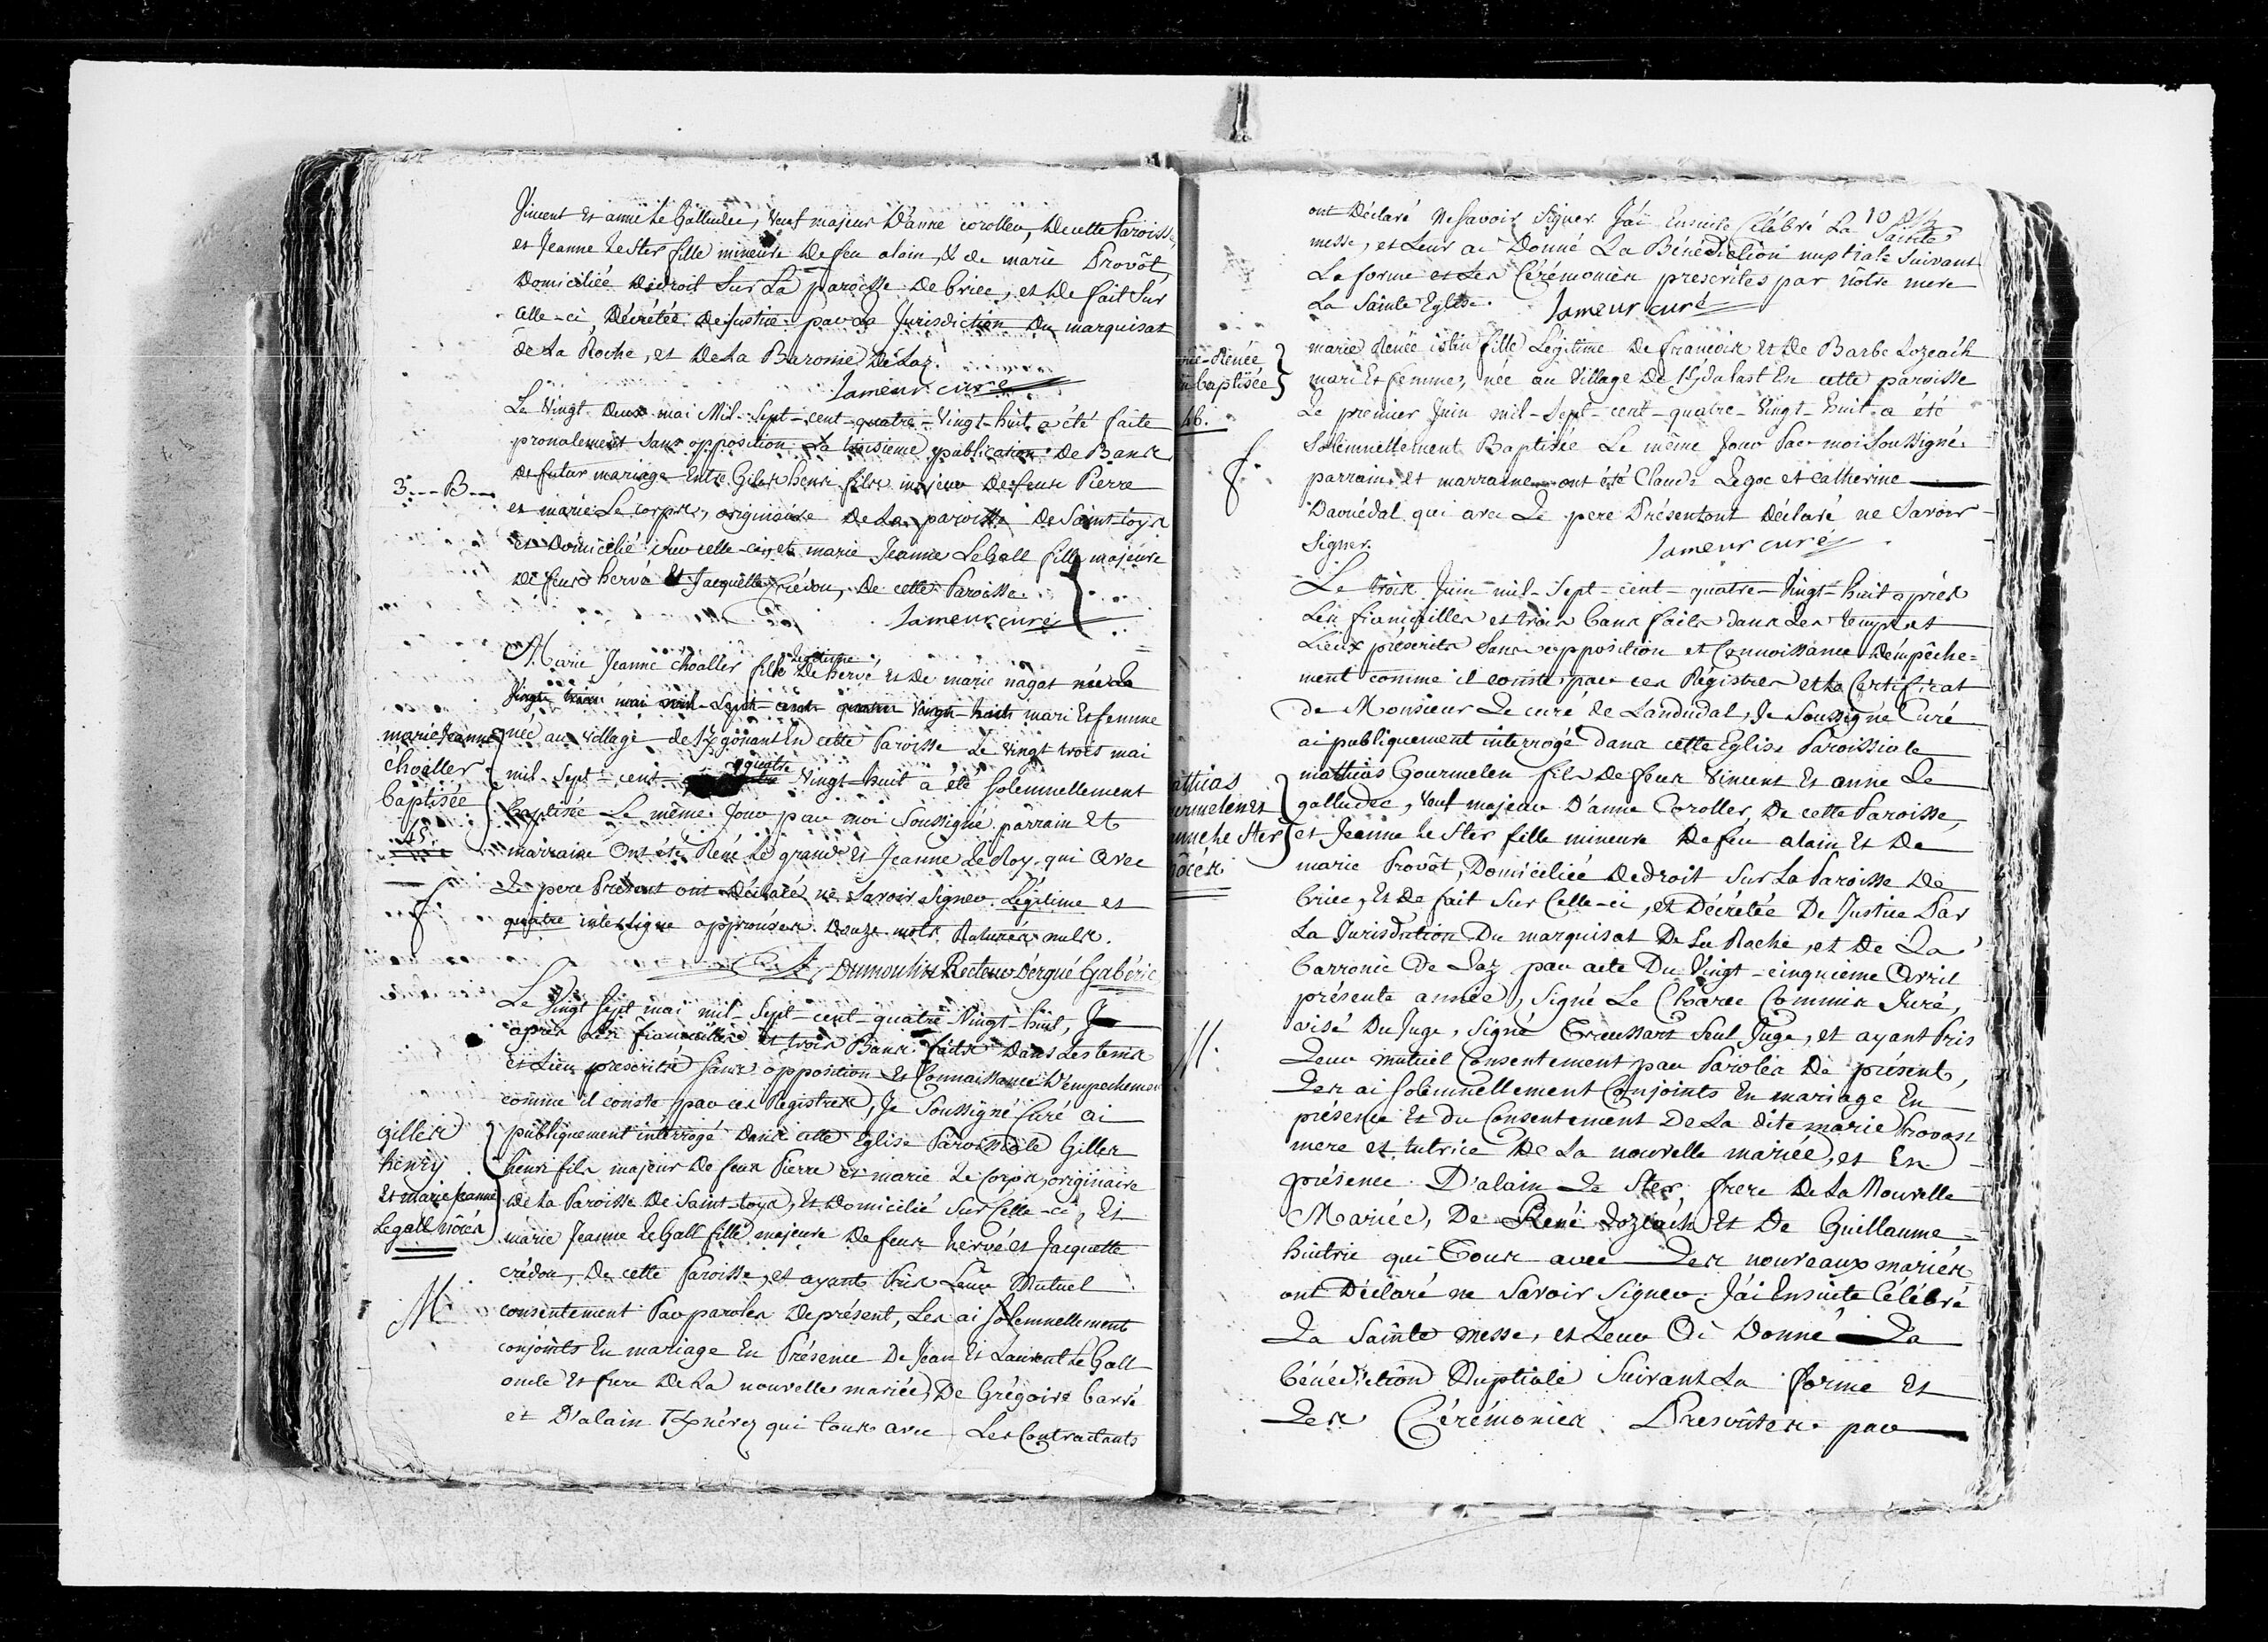 Vincent et anne Le Galludec, veuf majeur D'anne coroller, De cette Paroisse,
et Jeanne Le Ster fille mineure De feu alain, & de marie Provôt,
Domiciliée De droit Sur La paroisse De briec, et De fait Sur
celle-ci, Décrétée De justice par La Jurisdiction Du marquisat
de La Roche, et De La Baronie De Laz.
Lameur curé
Le Vingt-Deux mai Mil-Sept-cent-quatre-Vingt-huit a été faite
pronalement Sans opposition La troisieme publication De Bans
De futur mariage Entre Giles henri fils majeur De feus Pierre
3---B---
et marie Le corps, originaire De La paroisse De Saint-toys
et Domicilié Sur celle-ci, et marie Jeanne Le Gall fille majeure
De feus hervé Et Jacquette Crédou, De cette Paroisse.
Lameur curé
Marie Jeanne choaller fille Legitime De hervé Et De marie nagat née Le
Vingt trois mai mil-Sept-cent quatre Vingt-huit mari Et femme
marie Jeanne
choaller
baptisée
45.
née au village de Kgonant En cette Paroisse Le vingt trois mai
mil-Sept-cent-quatre Vingt-huit a été Solemnellement
Baptisée Le même Jour par moi Soussigné parrain Et
marraine Ont été René Le grand Et Jeanne Le Roy qui avec
Le pere Présent ont Déclaré ne Savoir Signer Légitime et
quatre interligne approuvés. Douze mots Raturés nuls.
Dumoulin Recteur D'ergué Gabéric
Le Vingt Sept mai mil-Sept-cent-quatre-Vingt-huit,
après Les fiançailles et trois Bans faits Dans Les tems
et Lieu prescrits Sans opposition Et Connaissance D'empechement
comme il conste par ces Registres, Je Soussigné Curé ai
Gilles
henry
Et marie Jeanne
Le gall nôcés
publiquement interrogé Dans cette Eglise Paroissiale Gilles
henri fils majeur De feus Pierre et marie Le Corps, originaire
De La Paroisse De Saint-toys, Et Domicilié Sur Celle-ci, Et
marie Jeanne Le Gall fille majeure De feus hervé Et Jacquette
crédou, De cette Paroisse, et ayant Pris Leur Mutuel
M.
consentement Par paroles De présent, Les ai Solemnellement
conjoints En mariage En Présence De Jean Et Laurent Le Gall
oncle Et frere De La nouvelle mariée, De Grégoire barré
et D'alain Knévez qui tous avec Les Contractants
ont Déclaré Ne Savoir Signer. J'ai Ensuite Célébré La Sainte
messe, et Leur ai Donné La Bénédiction nuptiale Suivant
La forme et Les Cérémonies prescrites par nôtre mere
La Sainte Eglise. Lameur curé
Renée
baptisée
46.
marie Renée istin fille Légitime De francois Et De Barbe Lozeach
mari Et femme, née au Village De Kdalast En cette paroisse
Le premier Juin mil-Sept-cent-quatre-Vingt-huit a été
Solemnellement Baptisée Le même Jour Par moi Soussigné.
parrain Et marraine ont été Claude Le goc et catherine
Daouédal qui avec Le pere Présent ont Déclaré ne Savoir
Signer.
Lameur curé
Le trois Juin mil-Sept-cent-quatre-Vingt-huit après
Les fiançailles et trois bans faits dans Les temps et
Lieux préscrits Sans opposition et Connoissance D'empêche=
ment comme il conste par ces Régistres et Le Certificat
de Monsieur Le curé de Landudal, Je Soussigné Curé
ai publiquement interrogé dans cette Eglise Paroissiale
athias
urmelen et
anne Le Ster
nôces
mathias Gourmelen fils De feux Vincent Et anne Le
galludec, Veuf majeur D'anne Coroller, De cette Paroisse,
et Jeanne Le Ster fille mineure De feu alain Et De
marie Provôt, Domiciliée De droit Sur La Paroisse De
briec, Et De fait Sur Celle-ci, et Décrétée De Justice Par
La Jurisdiction Du marquisat De La Roche, et De La
barronie De Laz par acte Du Vingt-cinquieme Avril
présente année, Signé Le Commis Juré,
M.
visé Du Juge, Signé Seul Juge, et ayant Pris
Leur mutuel Consentement par Paroles De présent,
Les ai Solemnellement Conjoints En mariage En
présence Et du Consentement De La dite marie Provost
mere et tutrice De La nouvelle mariée, et En
présence D'alain Le Ster, frere De La Nouvelle
Mariée, De René Lozeach Et De Guillaume
huitric qui Tous avec Les nouveaux mariés
ont Déclaré ne Savoir Signer. J'ai Ensuite Célébré
La Sainte Messe, et Leur Ai Donné La
bénédiction Nuptiale Suivant La forme Et
Les Cérémonies Prescrites par